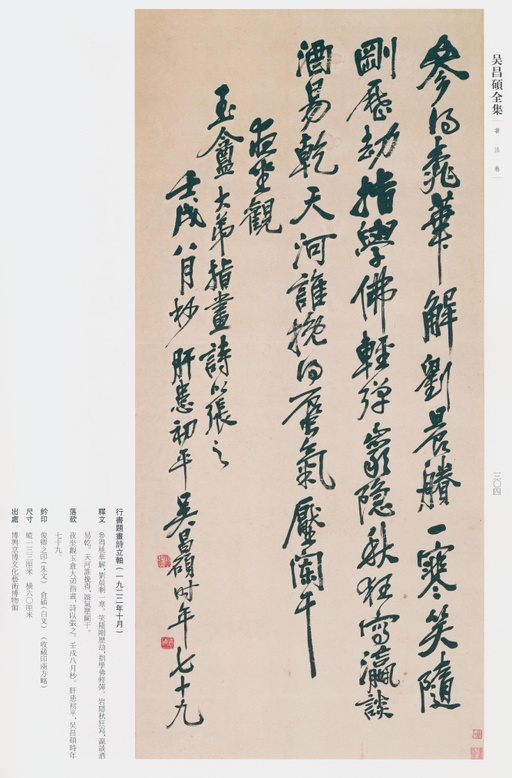 吴昌碩全集
書法卷
三〇四
參得桃華解劉晨賸一寒笑隨
剛歷劫指學佛輕彈隱秋狂寫瀛談
酒易乾天河誰挽得蜃氣壓闌干
夜坐觀
玉龕大弟指畫詩以張之
壬戌八月杪肝恙初平吴昌碩時年七十九
行書題畫詩立軸(一九二二年十月)
釋文 參得桃華解,劉晨剩一寒。笑隨剛歷劫,指學佛輕彈。岩隱秋狂寫,瀛談酒
易乾。天河誰挽得,蜃氣壓闌干。
落款 夜坐觀玉龕大弟指畫,詩以張之。壬戌八月杪,肝恙初平,吴昌碩時年
七十九。
鈐印 俊卿之印(朱文) 倉碩(白文) (收藏印兩方略)
尺寸 縱一三三厘米 橫六〇厘米
出處 博興京博文化藝術博物館